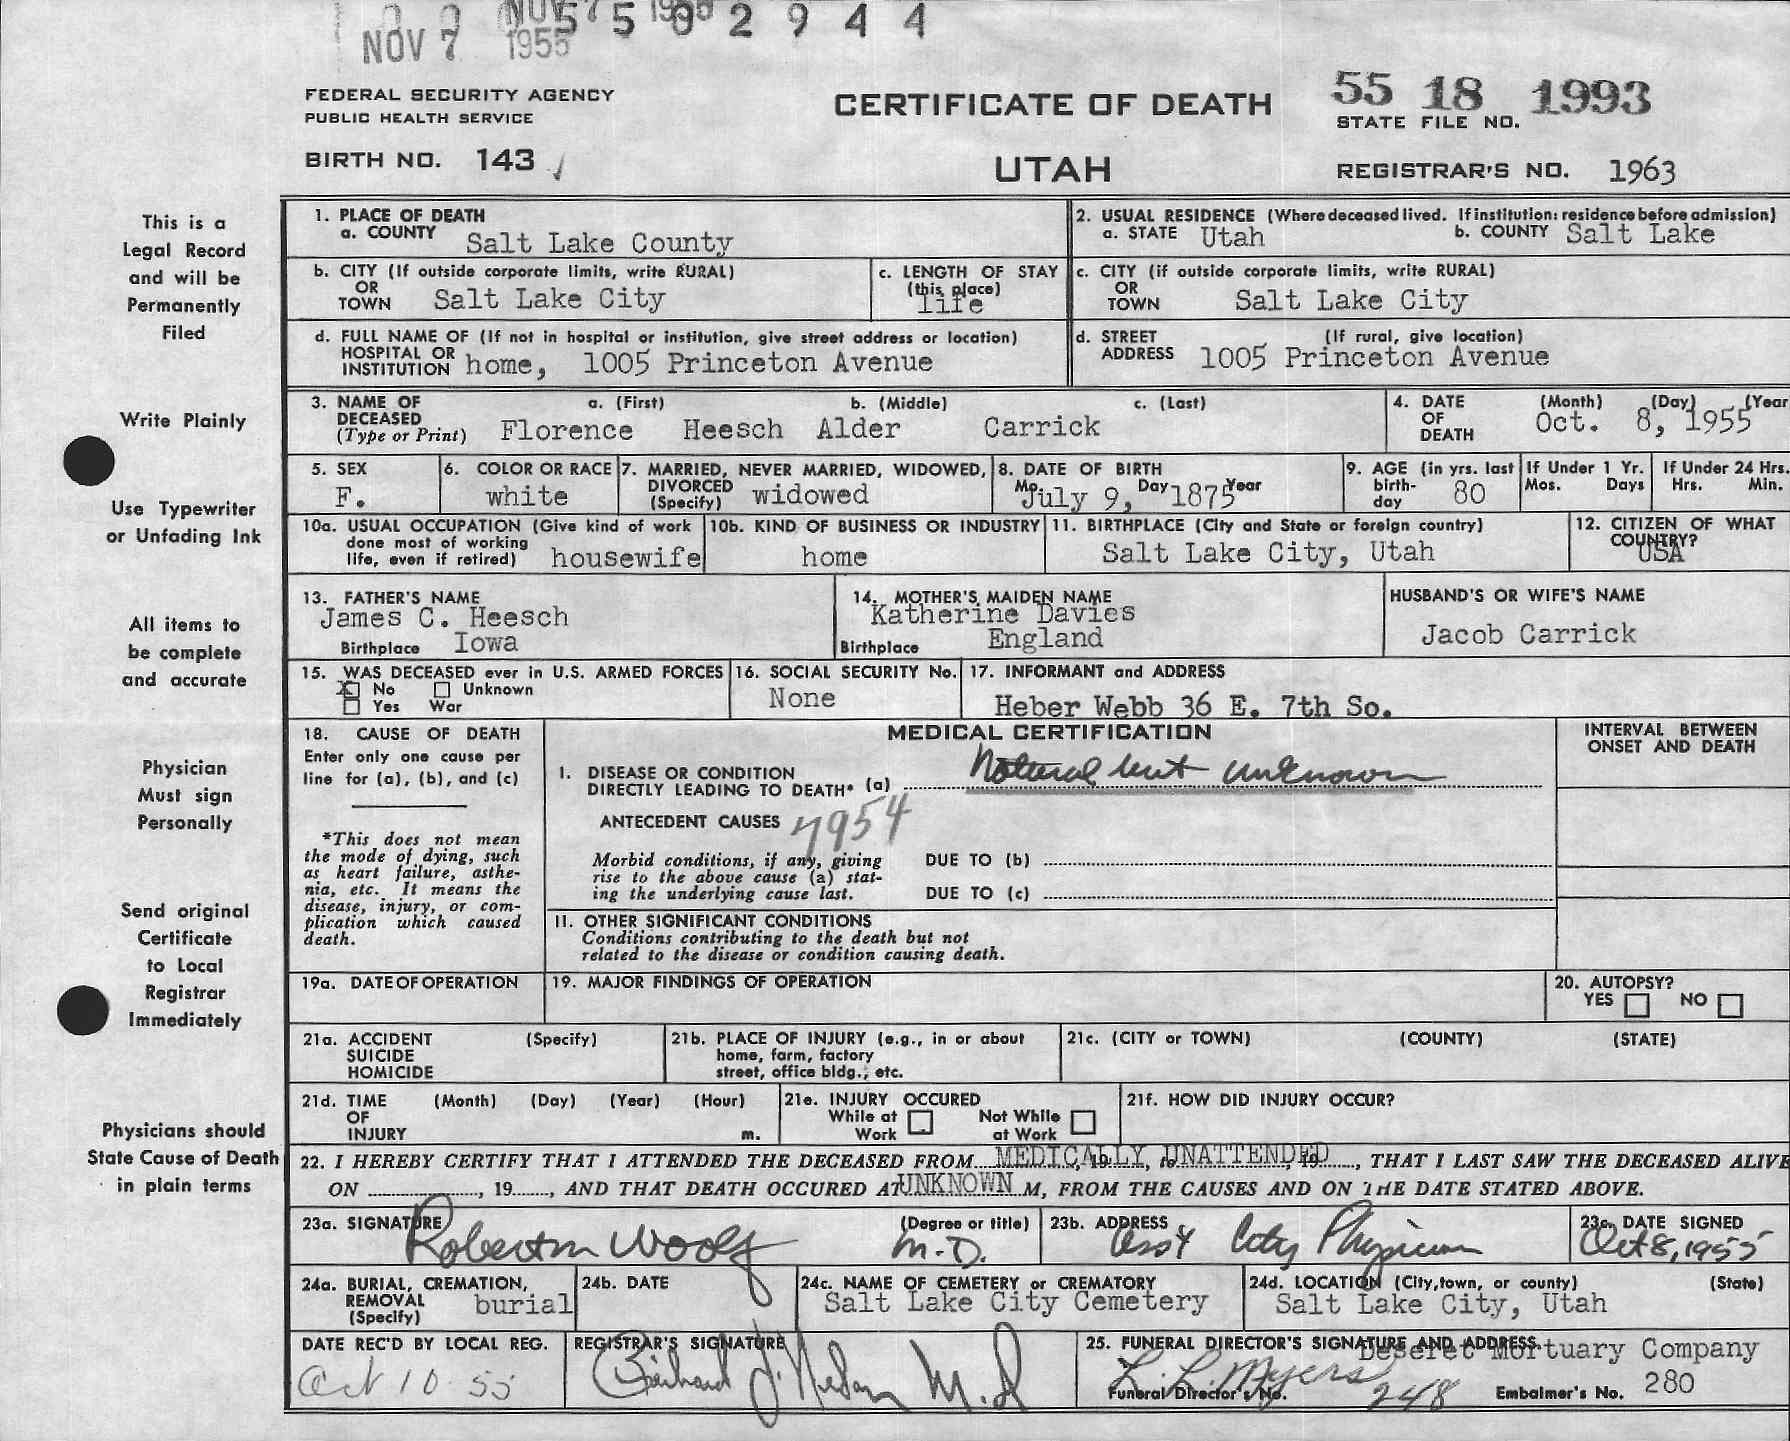 NOV 7 1955
5 5 0 2 9 4 4
FEDERAL SECURITY AGENCY
PUBLIC HEALTH SERVICE
BIRTH NO. 143
CERTIFICATE OF DEATH
UTAH
55 18 1993
STATE FILE NO.
REGISTRAR'S NO. 1963
This is a
Legal Record
and will be
Permanently
Filed
Write Plainly
Use Typewriter
or Unfading Ink
All items to
be complete
and accurate
Physician
Must sign
Personally
Send original
Certificate
to Local
Registrar
Immediately
Physicians should
State Cause of Death
in plain terms
1. PLACE OF DEATH
a. COUNTY Salt Lake County
2. USUAL RESIDENCE (Where deceased lived. If institution: residence before admission)
a. STATE Utah b. COUNTY Salt Lake
b. CITY (If outside corporate limits, write RURAL)
OR
TOWN Salt Lake City
c. LENGTH OF STAY
(this place)
life
c. CITY (if outside corporate limits, write RURAL)
OR
TOWN Salt Lake City
d. FULL NAME OF (If not in hospital or institution, give street address or location)
HOSPITAL OR
INSTITUTION home, 1005 Princeton Avenue
d. STREET (If rural, give location)
ADDRESS 1005 Princeton Avenue
3. NAME OF a. (First) b. (Middle) c. (Last)
DECEASED
(Type or Print) Florence Heesch Alder Carrick
4. DATE (Month) (Day) (Year
OF
DEATH Oct. 8, 1955
5. SEX
F.
6. COLOR OR RACE
white
7. MARRIED, NEVER MARRIED, WIDOWED,
DIVORCED
(Specify) widowed
8. DATE OF BIRTH
Mo. Day Year
July 9, 1875
9. AGE (in yrs. last
birth-
day 80
If Under 1 Yr.
Mos. Days
If Under 24 Hrs.
Hrs. Min.
10a. USUAL OCCUPATION (Give kind of work
done most of working
life, even if retired) housewife
10b. KIND OF BUSINESS OR INDUSTRY
home
11. BIRTHPLACE (City and State or foreign country)
Salt Lake City, Utah
12. CITIZEN OF WHAT
COUNTRY?
USA
13. FATHER'S NAME
James C. Heesch
Birthplace Iowa
14. MOTHER'S MAIDEN NAME
Katherine Davies
Birthplace England
HUSBAND'S OR WIFE'S NAME
Jacob Carrick
15. WAS DECEASED ever in U.S. ARMED FORCES
X No Unknown
Yes War
16. SOCIAL SECURITY No.
None
17. INFORMANT and ADDRESS
Heber Webb 36 E. 7th So.
18. CAUSE OF DEATH
Enter only one cause per
line for (a), (b), and (c)
*This does not mean
the mode of dying, such
as heart failure, asthe-
nia, etc. It means the
disease, injury, or com-
plication which caused
death.
MEDICAL CERTIFICATION
I. DISEASE OR CONDITION
DIRECTLY LEADING TO DEATH* (a) Natural but unknown
ANTECEDENT CAUSES 7954
Morbid conditions, if any, giving
rise to the above cause (a) stat-
ing the underlying cause last.
DUE TO (b)
DUE TO (c)
II. OTHER SIGNIFICANT CONDITIONS
Conditions contributing to the death but not
related to the disease or condition causing death.
INTERVAL BETWEEN
ONSET AND DEATH
19a. DATE OF OPERATION
19. MAJOR FINDINGS OF OPERATION
20. AUTOPSY?
YES NO
21a. ACCIDENT (Specify)
SUICIDE
HOMICIDE
21b. PLACE OF INJURY (e.g., in or about
home, farm, factory
street, office bldg., etc.
21c. (CITY or TOWN) (COUNTY) (STATE)
21d. TIME (Month) (Day) (Year) (Hour)
OF
INJURY m.
21e. INJURY OCCURED
While at Not While
Work at Work
21f. HOW DID INJURY OCCUR?
22. I HEREBY CERTIFY THAT I ATTENDED THE DECEASED FROM MEDICALLY, 19 UNATTENDED, 19, THAT I LAST SAW THE DECEASED ALIVE
ON , 19, AND THAT DEATH OCCURED AT UNKNOWN M, FROM THE CAUSES AND ON THE DATE STATED ABOVE.
23a. SIGNATURE (Degree or title)
Woolf M.D.
23b. ADDRESS
Asst City Physician
23c. DATE SIGNED
Oct 8, 1955
24a. BURIAL, CREMATION,
REMOVAL
(Specify) burial
24b. DATE
24c. NAME OF CEMETERY or CREMATORY
Salt Lake City Cemetery
24d. LOCATION (City, town, or county) (State)
Salt Lake City, Utah
DATE REC'D BY LOCAL REG.
Oct 10 55
REGISTRAR'S SIGNATURE
M.D
25. FUNERAL DIRECTOR'S SIGNATURE AND ADDRESS.
Deseret Mortuary Company
L. L. Myers
Funeral Director's No. 248 Embalmer's No. 280